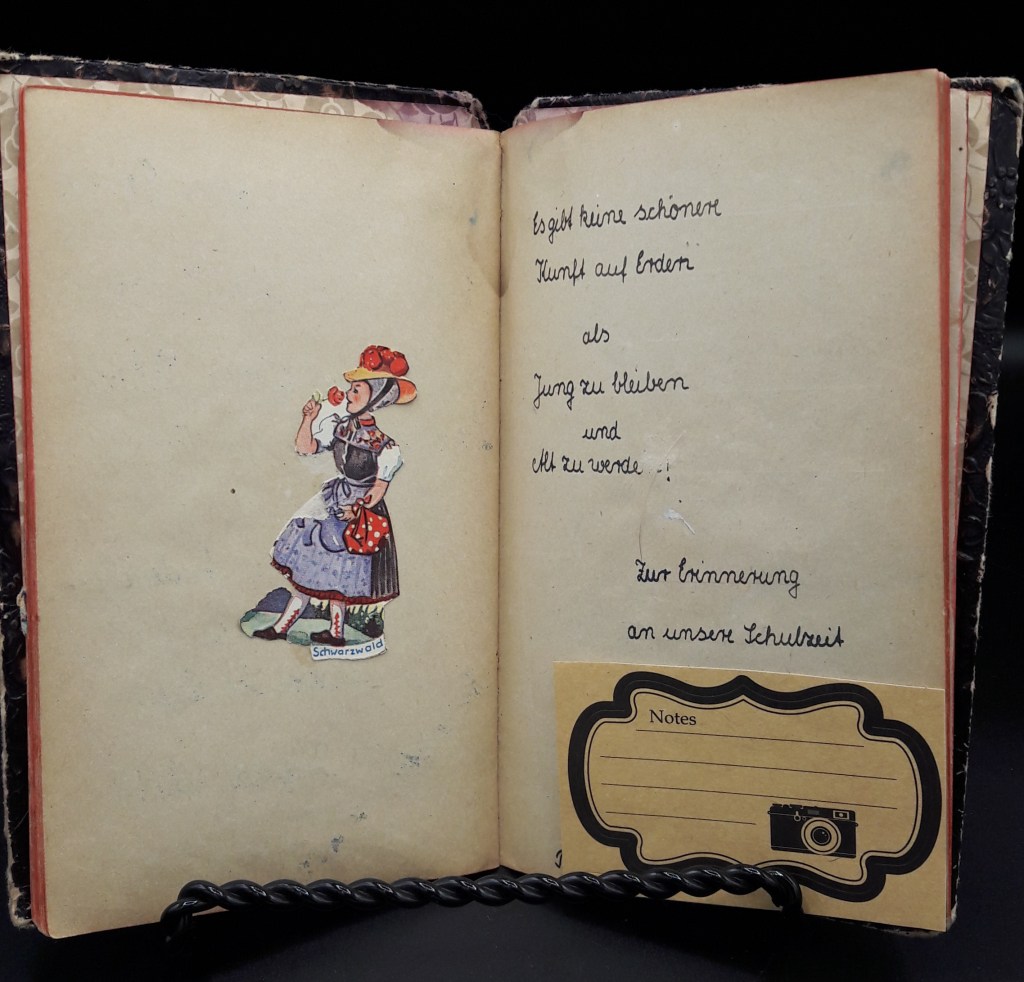 Schwarzwald
Es gibt keine schönere
Kunst auf Erden
als
Jung zu bleiben
und
Alt zu werde
Zur Erinnerung
an unsere Schulzeit
Notes